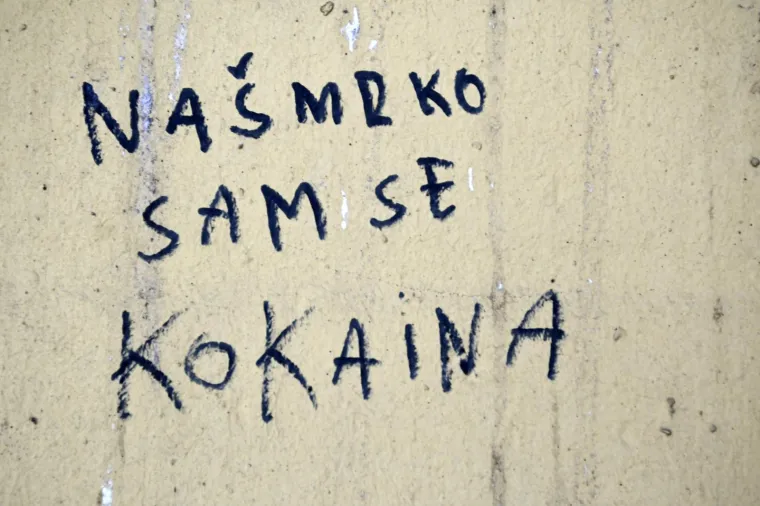 NAŠMRKO
SAM SE
KOKAINA